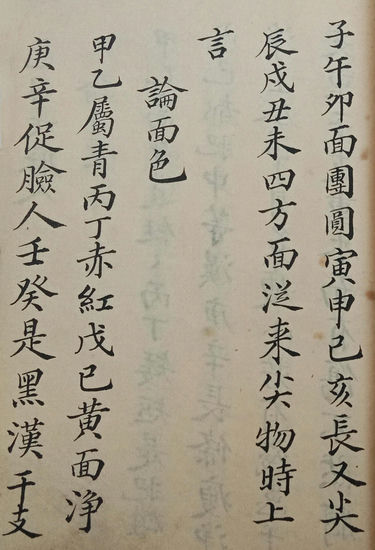 子午卯面團圓寅申巳亥長又尖
辰戌丑未四方面從来尖物時上
言
論面色
甲乙屬青丙丁赤紅戊已黃面淨
庚辛促臉人壬癸是黑漢干支